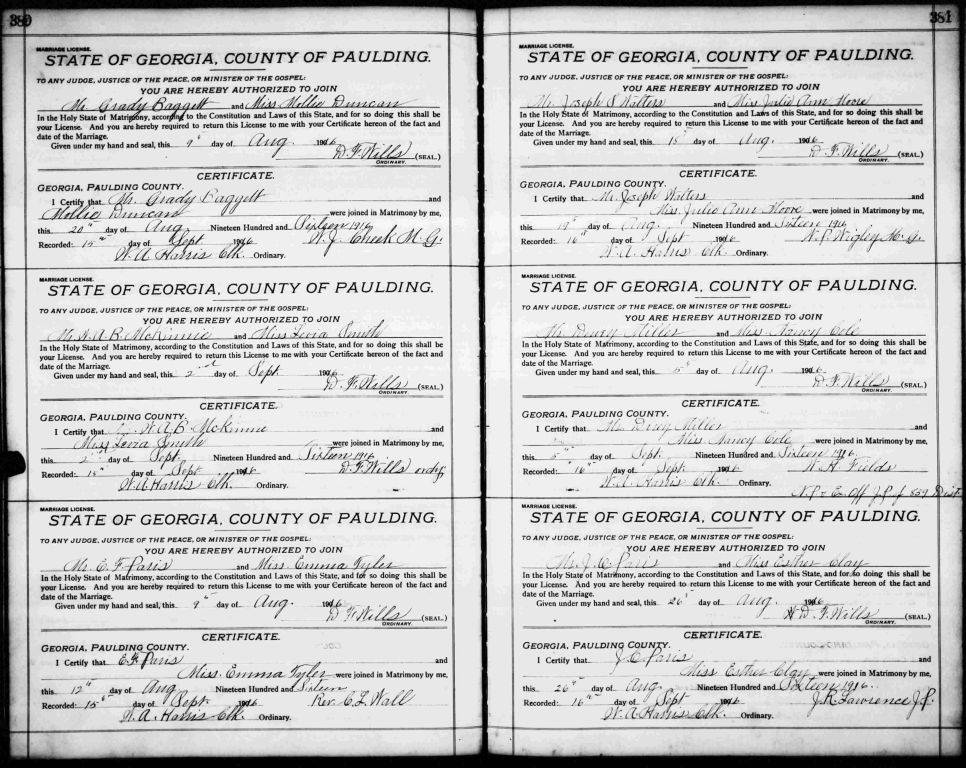 380
MARRIAGE LICENSE.
STATE OF GEORGIA, COUNTY OF PAULDING.
TO ANY JUDGE, JUSTICE OF THE PEACE, OR MINISTER OF THE GOSPEL:
YOU ARE HEREBY AUTHORIZED TO JOIN
Mr. Grady Baggett and Miss Mollie Duncan
In the Holy State of Matrimony, according to the Constitution and Laws of this State, and for so doing this shall be
your License. And you are hereby required to return this License to me with your Certificate hereon of the fact and
date of the Marriage.
Given under my hand and seal, this 9" day of Aug. 1916
D. F. Wills (SEAL.)
ORDINARY.
CERTIFICATE.
GEORGIA, PAULDING COUNTY.
I Certify that Mr. Grady Baggett and
Mollie Duncan were joined in Matrimony by me,
this 20" day of Aug Nineteen Hundred and Sixteen 1916
Recorded: 15" day of Sept 1916 W. J. Cheek M. G.
W. A Harris Clk. Ordinary.
MARRIAGE LICENSE.
STATE OF GEORGIA, COUNTY OF PAULDING.
TO ANY JUDGE, JUSTICE OF THE PEACE, OR MINISTER OF THE GOSPEL:
YOU ARE HEREBY AUTHORIZED TO JOIN
Mr. W. A. B. McKinnie and Miss Smith
In the Holy State of Matrimony, according to the Constitution and Laws of this State, and for so doing this shall be
your License. And you are hereby required to return this License to me with your Certificate hereon of the fact and
date of the Marriage.
Given under my hand and seal, this 2nd day of Sept. 1916
D. F. Wills (SEAL.)
ORDINARY.
CERTIFICATE.
GEORGIA, PAULDING COUNTY.
I Certify that W. A. B McKinnie and
Miss Smith were joined in Matrimony by me,
this 2nd day of Sept. Nineteen Hundred and Sixteen 1916
Recorded: 15" day of Sept 1916 D. F. Wills ordy
W. A Harris Clk. Ordinary.
MARRIAGE LICENSE.
STATE OF GEORGIA, COUNTY OF PAULDING.
TO ANY JUDGE, JUSTICE OF THE PEACE, OR MINISTER OF THE GOSPEL:
YOU ARE HEREBY AUTHORIZED TO JOIN
Mr. E. F. Paris and Miss. Emma Tyler
In the Holy State of Matrimony, according to the Constitution and Laws of this State, and for so doing this shall be
your License. And you are hereby required to return this License to me with your Certificate hereon of the fact and
date of the Marriage.
Given under my hand and seal, this 9" day of Aug. 1916
D. F. Wills (SEAL.)
ORDINARY.
CERTIFICATE.
GEORGIA, PAULDING COUNTY.
I Certify that E. F. Paris and
Miss. Emma Tyler were joined in Matrimony by me,
this 12" day of Aug Nineteen Hundred and Sixteen
Recorded: 15" day of Sept. 1916 Rev. C. L. Wall
W. A. Harris Clk. Ordinary.
381
MARRIAGE LICENSE.
STATE OF GEORGIA, COUNTY OF PAULDING.
TO ANY JUDGE, JUSTICE OF THE PEACE, OR MINISTER OF THE GOSPEL:
YOU ARE HEREBY AUTHORIZED TO JOIN
Mr. Joseph S Walters and Miss Julie Ann Moore
In the Holy State of Matrimony, according to the Constitution and Laws of this State, and for so doing this shall be
your License. And you are hereby required to return this License to me with your Certificate hereon of the fact and
date of the Marriage.
Given under my hand and seal, this 15" day of Aug. 1916
D. F. Wills (SEAL.)
ORDINARY.
CERTIFICATE.
GEORGIA, PAULDING COUNTY.
I Certify that Mr. Joseph Walters and
Miss. Julie Ann Moore were joined in Matrimony by me,
this 19" day of Aug. Nineteen Hundred and Sixteen 1916
Recorded: 16" day of Sept 1916 W. P. Wigley M. G.
W. A. Harris Clk. Ordinary.
MARRIAGE LICENSE.
STATE OF GEORGIA, COUNTY OF PAULDING.
TO ANY JUDGE, JUSTICE OF THE PEACE, OR MINISTER OF THE GOSPEL:
YOU ARE HEREBY AUTHORIZED TO JOIN
Mr. Miller and Miss. Nancy Cole
In the Holy State of Matrimony, according to the Constitution and Laws of this State, and for so doing this shall be
your License. And you are hereby required to return this License to me with your Certificate hereon of the fact and
date of the Marriage.
Given under my hand and seal, this 5" day of Aug. 1916
D. F. Wills (SEAL.)
ORDINARY.
CERTIFICATE.
GEORGIA, PAULDING COUNTY.
I Certify that Mr. Miller and
Miss. Nancy Cole were joined in Matrimony by me,
this 5" day of Sept. Nineteen Hundred and Sixteen 1916.
Recorded: 16" day of Sept. 1916 W. H. Fields
W. A. Harris Clk. Ordinary.
N. P. & Ex. Off J. P. of 839 Dist
MARRIAGE LICENSE.
STATE OF GEORGIA, COUNTY OF PAULDING.
TO ANY JUDGE, JUSTICE OF THE PEACE, OR MINISTER OF THE GOSPEL:
YOU ARE HEREBY AUTHORIZED TO JOIN
Mr. J. C. Paris and Miss Esther Clay
In the Holy State of Matrimony, according to the Constitution and Laws of this State, and for so doing this shall be
your License. And you are hereby required to return this License to me with your Certificate hereon of the fact and
date of the Marriage.
Given under my hand and seal, this 26" day of Aug. 1916
D. F. Wills (SEAL.)
ORDINARY.
CERTIFICATE.
GEORGIA, PAULDING COUNTY.
I Certify that J. C. Paris and
Miss Esther Clay were joined in Matrimony by me,
this 26" day of Aug. Nineteen Hundred and Sixteen 1916.
Recorded: 16" day of Sept 1916 J. R. Lawrence J. P.
W. A Harris Clk. Ordinary.